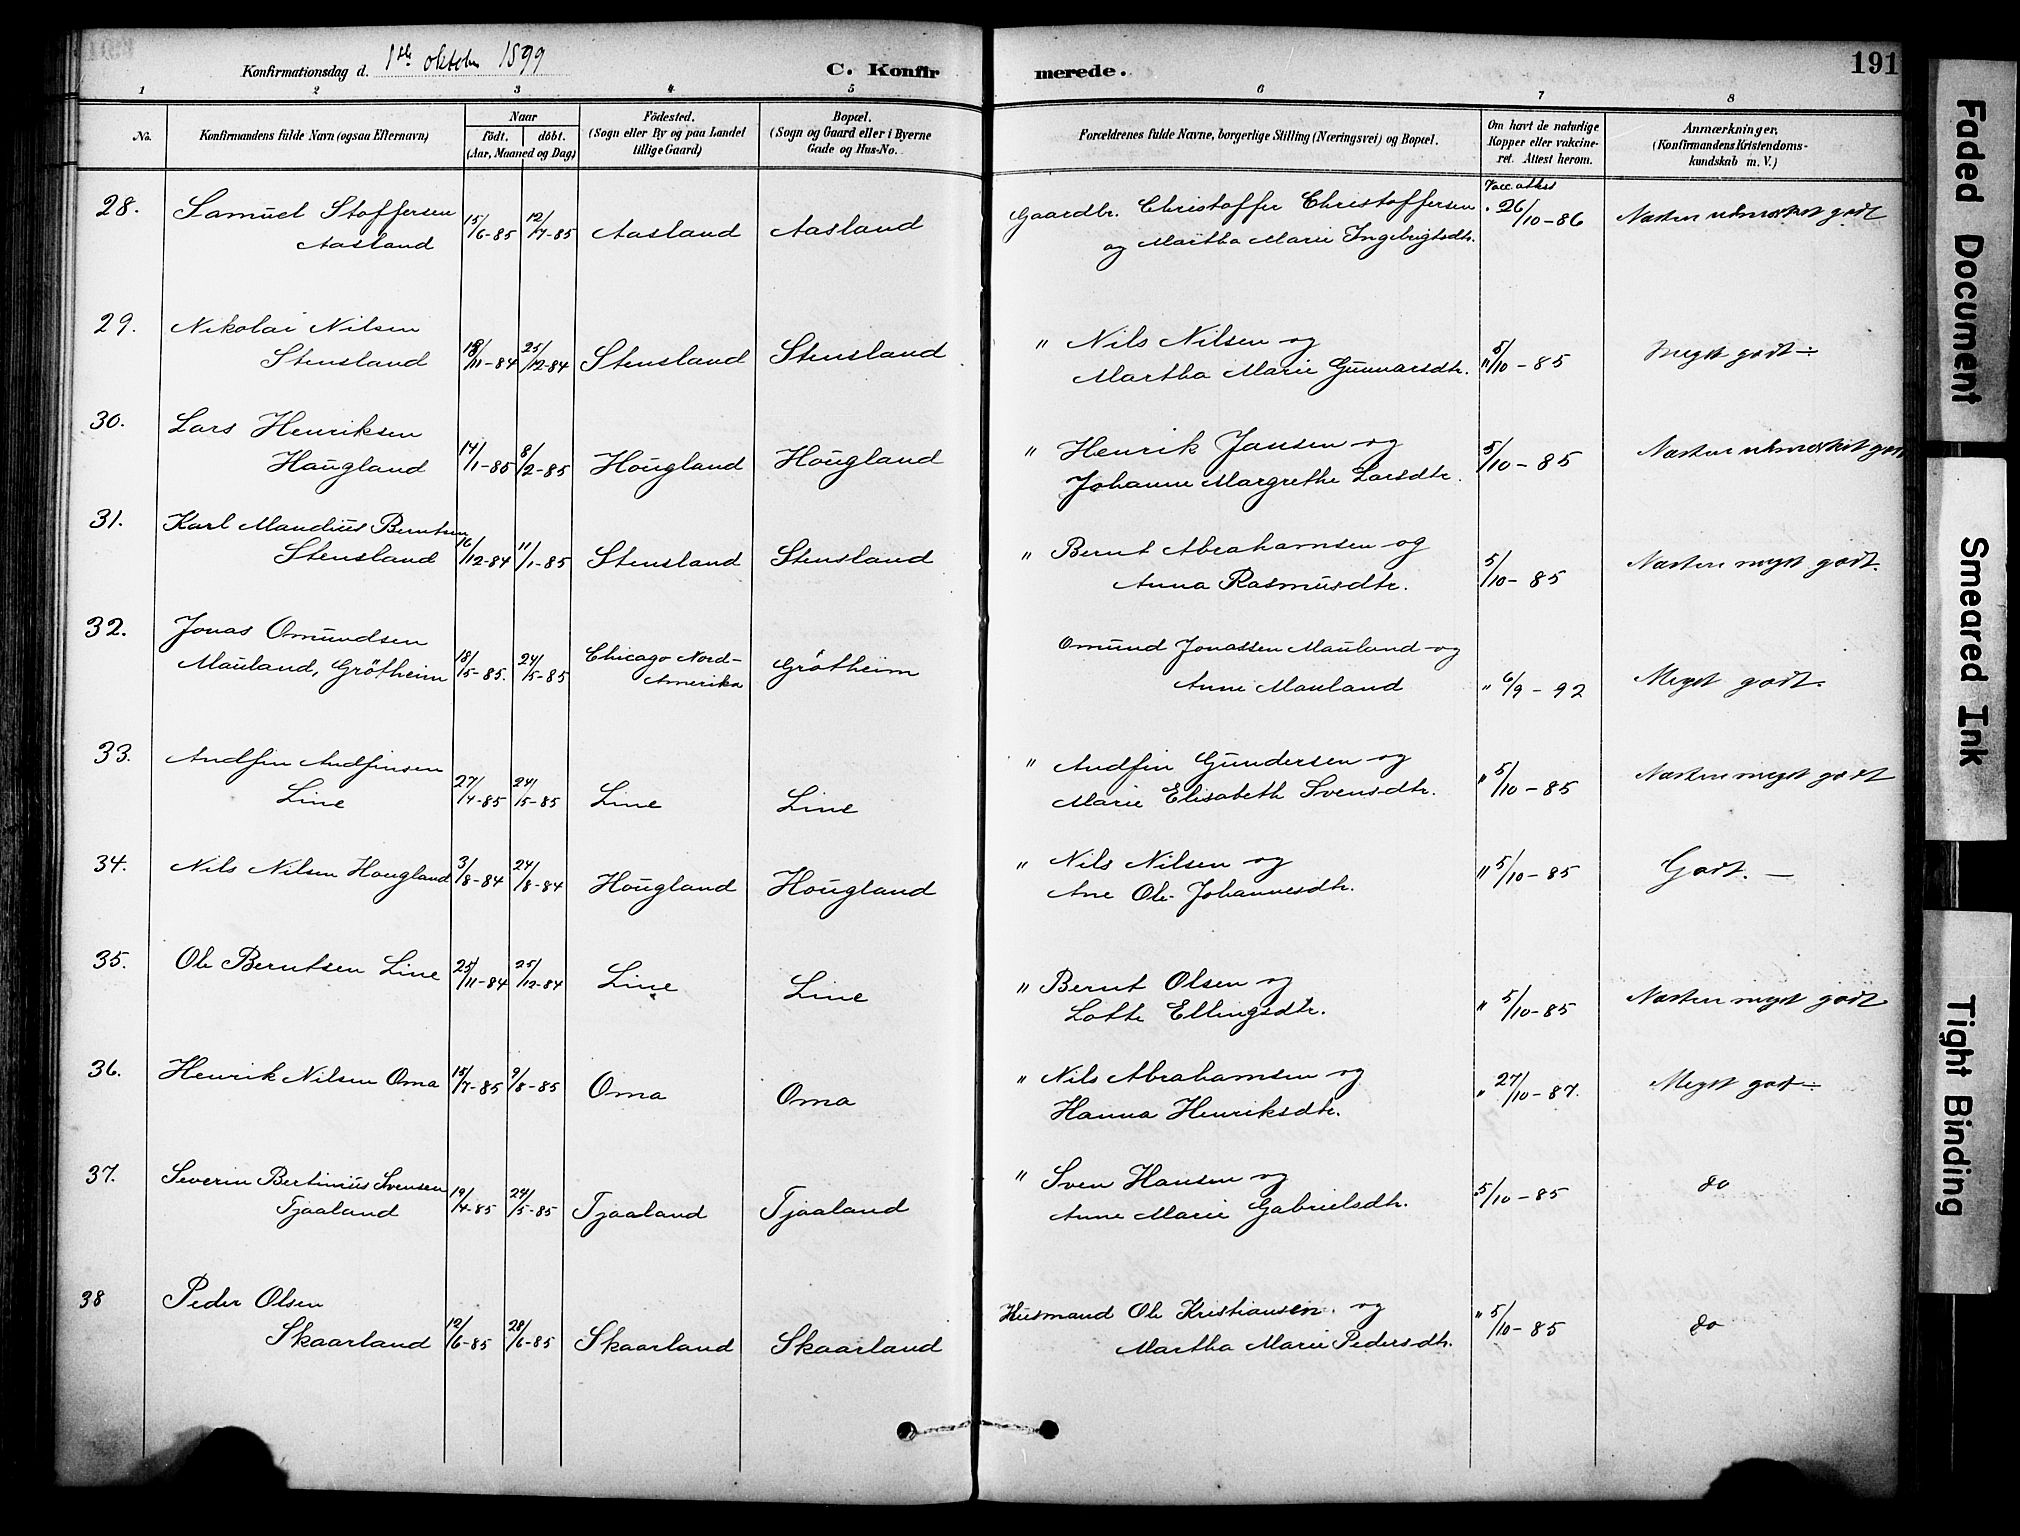 Konfirmationsdag d. 1ste oktober 1899
C. Konfirmerede.
191
1 2 3 4 5 6 7 8
No.
Konfirmandens fulde Navn (ogsaa Efternavn)
Naar
født. døbt.
(Aar, Maaned og Dag)
Fødested.
(Sogn eller By og paa Landet
tillige Gaard)
Bopæl.
(Sogn og Gaard eller i Byerne
Gade og Hus-No.
Forældrenes fulde Navne, borgerlige Stilling (Næringsvei) og Bopæl.
Om havt de naturlige
Kopper eller vakcine-
ret. Attest herom.
Anmærkninger.
(Konfirmandens Kristendoms-
kundskab m. V.)
28. Samuel Stoffersen
Aasland 15/6-85 12/7-85 Aasland Aasland
Gaardbr. Christoffer Christoffersen
og Martha Marie Ingebrigtsdtr.
Vacc. attest
26/10-86 Næsten udmærket godt
29. Nikolai Nilsen
Stensland 18/11-84 25/12-84 Stensland Stensland
" Nils Nilsen og
Martha Marie Gunnarsdtr. " 5/10-85 Meget godt ÷
30. Lars Henriksen
Haugland 14/1-85 8/2-85 Hougland Hougland
" Henrik Jansen og
Johanne Margrethe Larsdtr. 5/10-85 Næsten udmærket godt
31. Karl Mandius Berntsen
Stensland 16/12-84 11/1-85 Stensland Stensland
" Bernt Abrahamsen og
Anna Rasmusdtr. 5/10-85 Næsten meget godt.
32. Jonas Omundsen
Mauland, Grötheim 18/5-85. 24/5-85 Chicago Nord-
Amerika Grötheim
Omund Jonassen Mauland og
Anne Mauland " 6/9-92 Meget godt.
33. Andfin Andfinsen
Line 27/4-85 24/5-85 Line Line
" Andfin Gundersen og
Marie Elisabeth Svensdtr. " 5/10-85 Næsten meget godt
34. Nils Nilsen Hougland 3/8-84 24/8-84 Hougland Hougland
" Nils Nilsen og
Ane Ole- Johannesdtr. " 5/10-85 Godt. —
35. Ole Berntsen Line 25/11-84 25/12-84 Line Line
" Bernt Olsen og
Lotte Ellingsdtr. " 5/10-85 Næsten meget godt
36. Henrik Nilsen Oma 15/7-85 9/8-85 Oma Oma
" Nils Abrahamsen og
Hanna Henriksdtr. " 27/10-87. Meget godt ÷
37. Severin Bertinius Svensen
Tjaaland 19/4-85 24/5-85 Tjaaland Tjaaland
" Sven Hansen og
Anne Marie Gabrielsdtr. 5/10-85 do
38 Peder Olsen
Skaarland 12/6-85 28/6-85 Skaarland Skaarland
Husmand Ole Kristiansen. og
Martha Marie Pedersdtr. " 5/10-85 do
Faded Document
Smeared Ink
Tight Binding